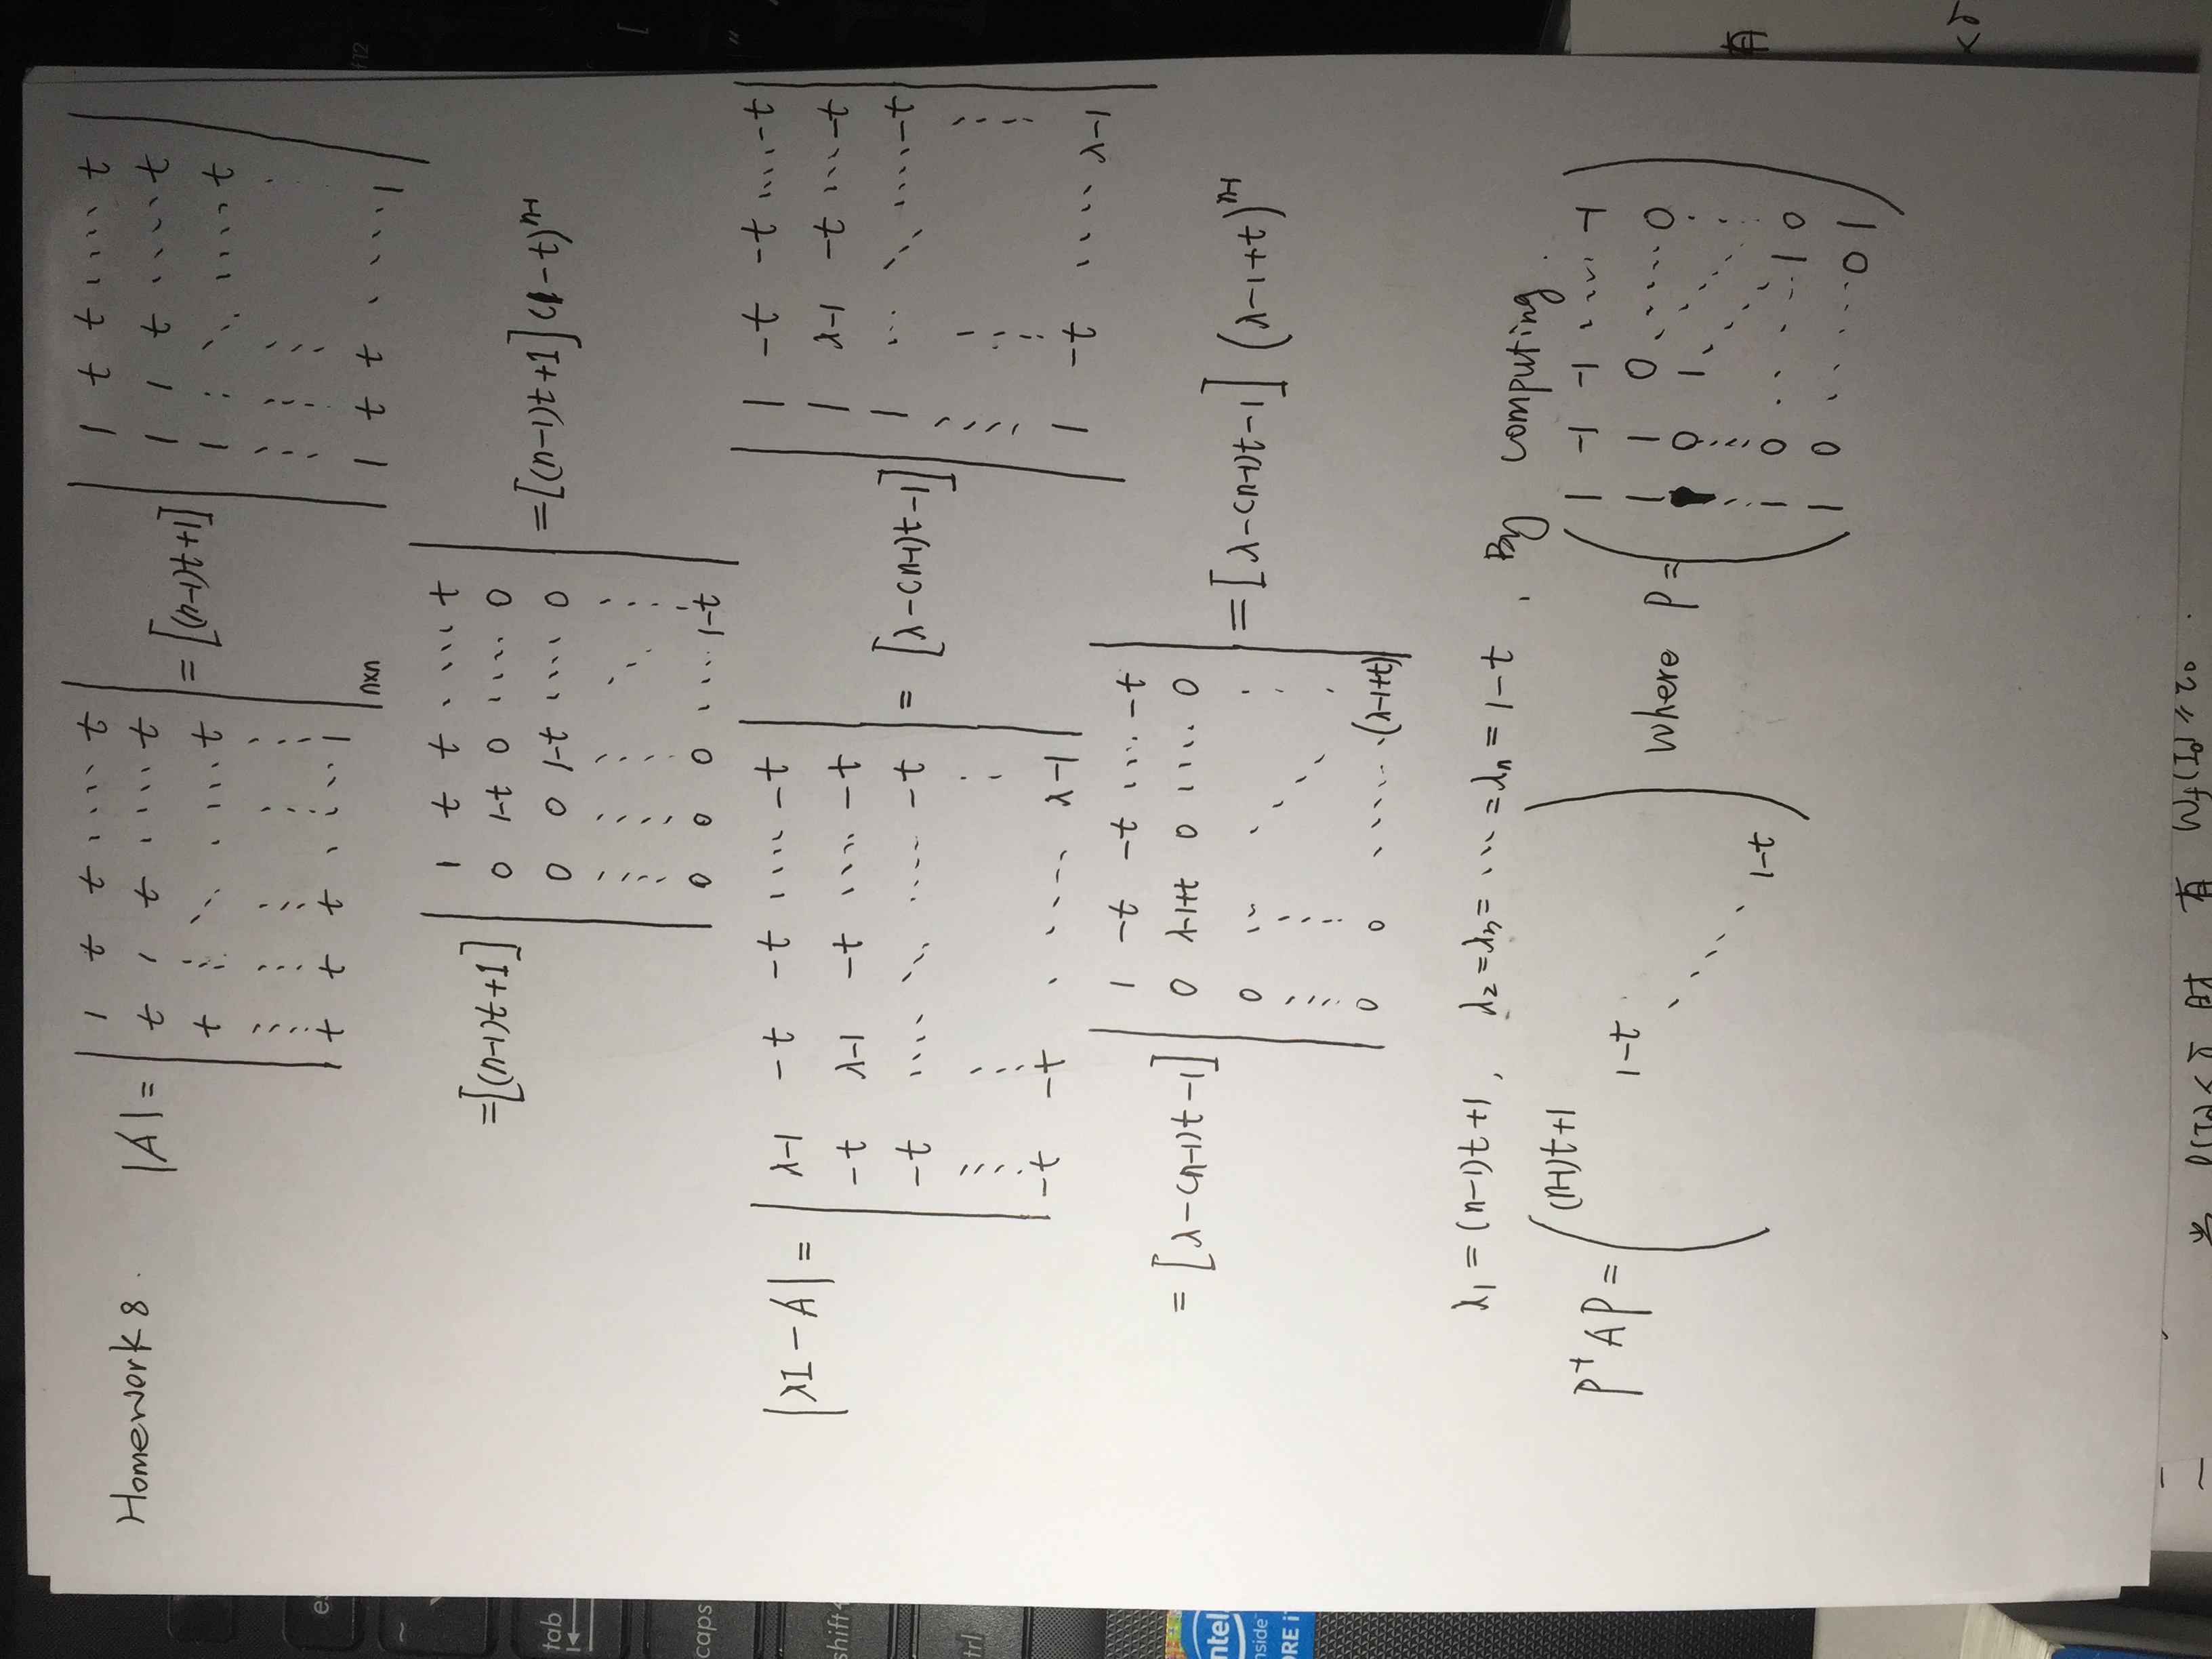 Homework 8.
|A| = | 1 t t .... t |
| t 1 t .... t |
| t ⋮ ⋱ .... t |
| ⋮ ⋮ ⋮ ⋮ ⋮ |
| t t t .... 1 | n×n
= [(n-1)t+1] | 1 t t .... t |
| 1 1 t .... t |
| 1 ⋮ ⋱ .... t |
| ⋮ ⋮ ⋮ |
| 1 t t .... 1 |
= [(n-1)t+1] | 1 t t .... t |
| 0 1-t 0 .... 0 |
| 0 0 1-t .... 0 |
| ⋮ ⋮ ⋮ ⋱ ⋮ |
| 0 0 0 .... 1-t |
= [(n-1)t+1] (1-t)^{n-1}
|λI - A| = | λ-1 -t -t .... -t |
| -t λ-1 -t .... -t |
| -t .... ⋱ .... -t |
| ⋮ ⋮ ⋮ |
| -t -t .... λ-1 |
= [λ-(n-1)t-1] | 1 -t -t .... -t |
| 1 λ-1 -t ... -t |
| 1 ... ⋱ .... -t |
| ⋮ ⋮ ⋮ |
| 1 -t .... λ-1 |
= [λ-(n-1)t-1] | 1 -t -t .... -t |
| 0 λ-1+t 0 .... 0 |
| 0 ... ⋱ ⋮ |
| ⋮ ⋮ |
| 0 0 ...... (λ-1+t) |
= [λ-(n-1)t-1] (λ-1+t)^{n-1}
λ₁ = (n-1)t+1, λ₂=λ₃= ... =λₙ = 1-t. By computing.
P⁻¹AP = ( (n-1)t+1
1-t
⋱
1-t )
where P = ( 1 -1 -1 .... -1
1 1 0 .... 0
0 1 ⋱ ⋮
⋮ ⋮ ⋱ ⋮
1 0 .... 1 0
1 0 .... 0 1 )
tab
caps
shift
trl
f12
[
"
intel
inside
CORE i7
有
<δ
有